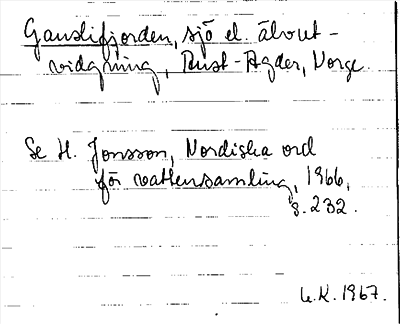 Gauslifjorden, sjö el. älvut-
vidgning, Aust-Agder, Norge.
Se H. Jonsson, Nordiska ord
för vattensamling, 1966,
s. 232.
L.K. 1967.